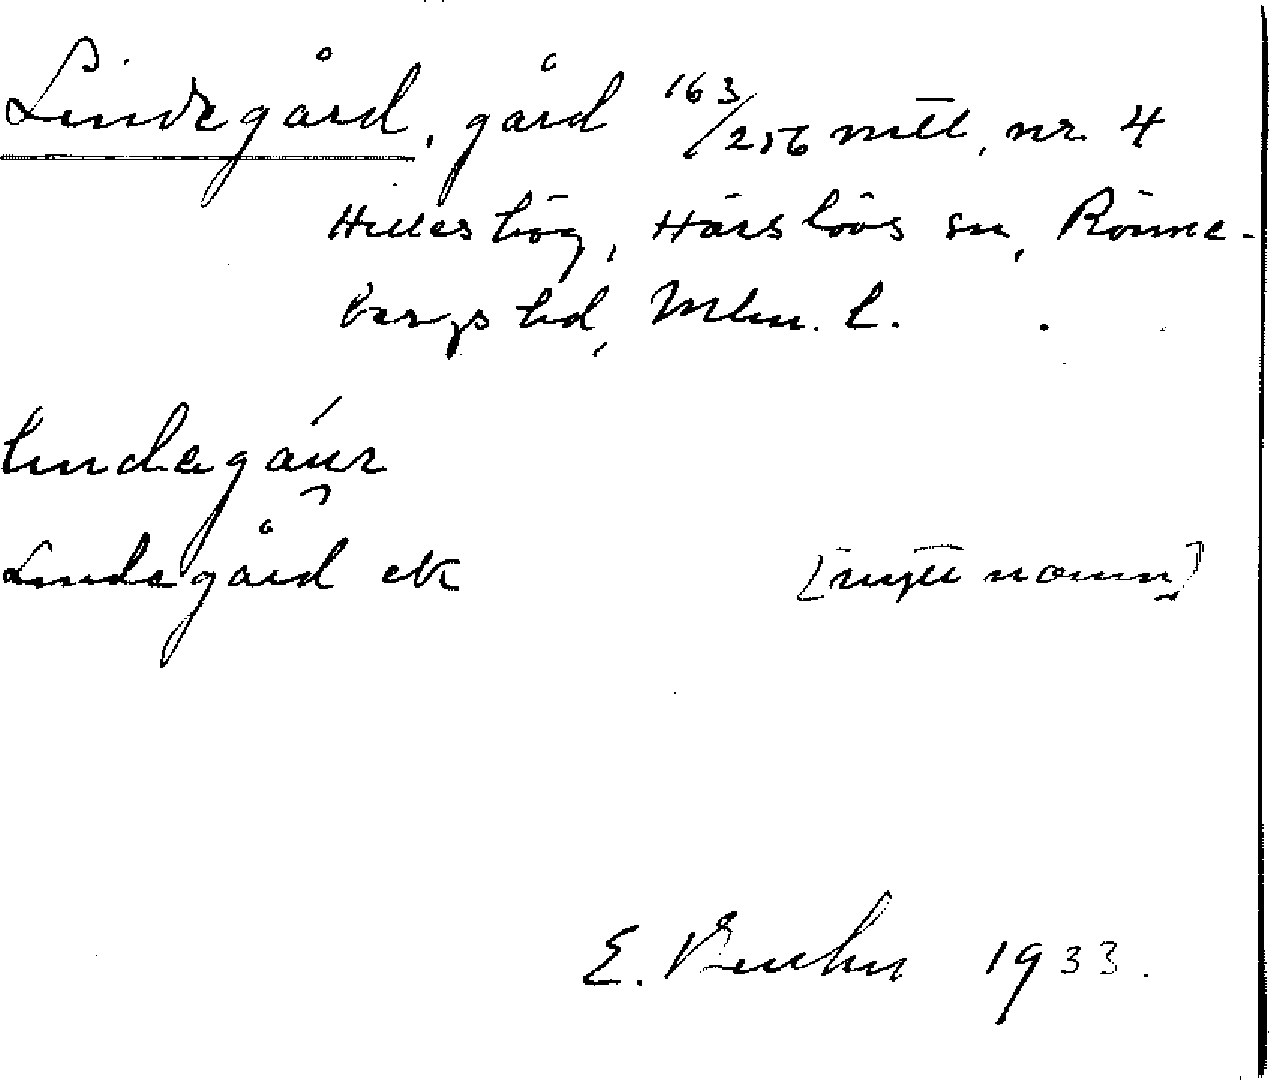 Lindegård, gård 163/256 mtl, nr. 4
Hilleshög, Härslövs sn, Rönne-
bergs hd, Mlm. l.
lindagáur
Lindagård ek [nytt namn]
E. 1933.